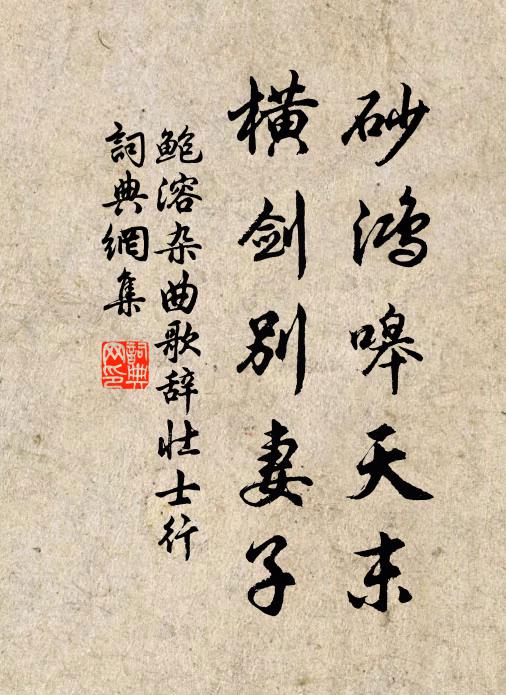 砂鸿嗥天末
横剑别妻子
鲍溶杂曲歌辞壮士行
詞典網集
詞典网印